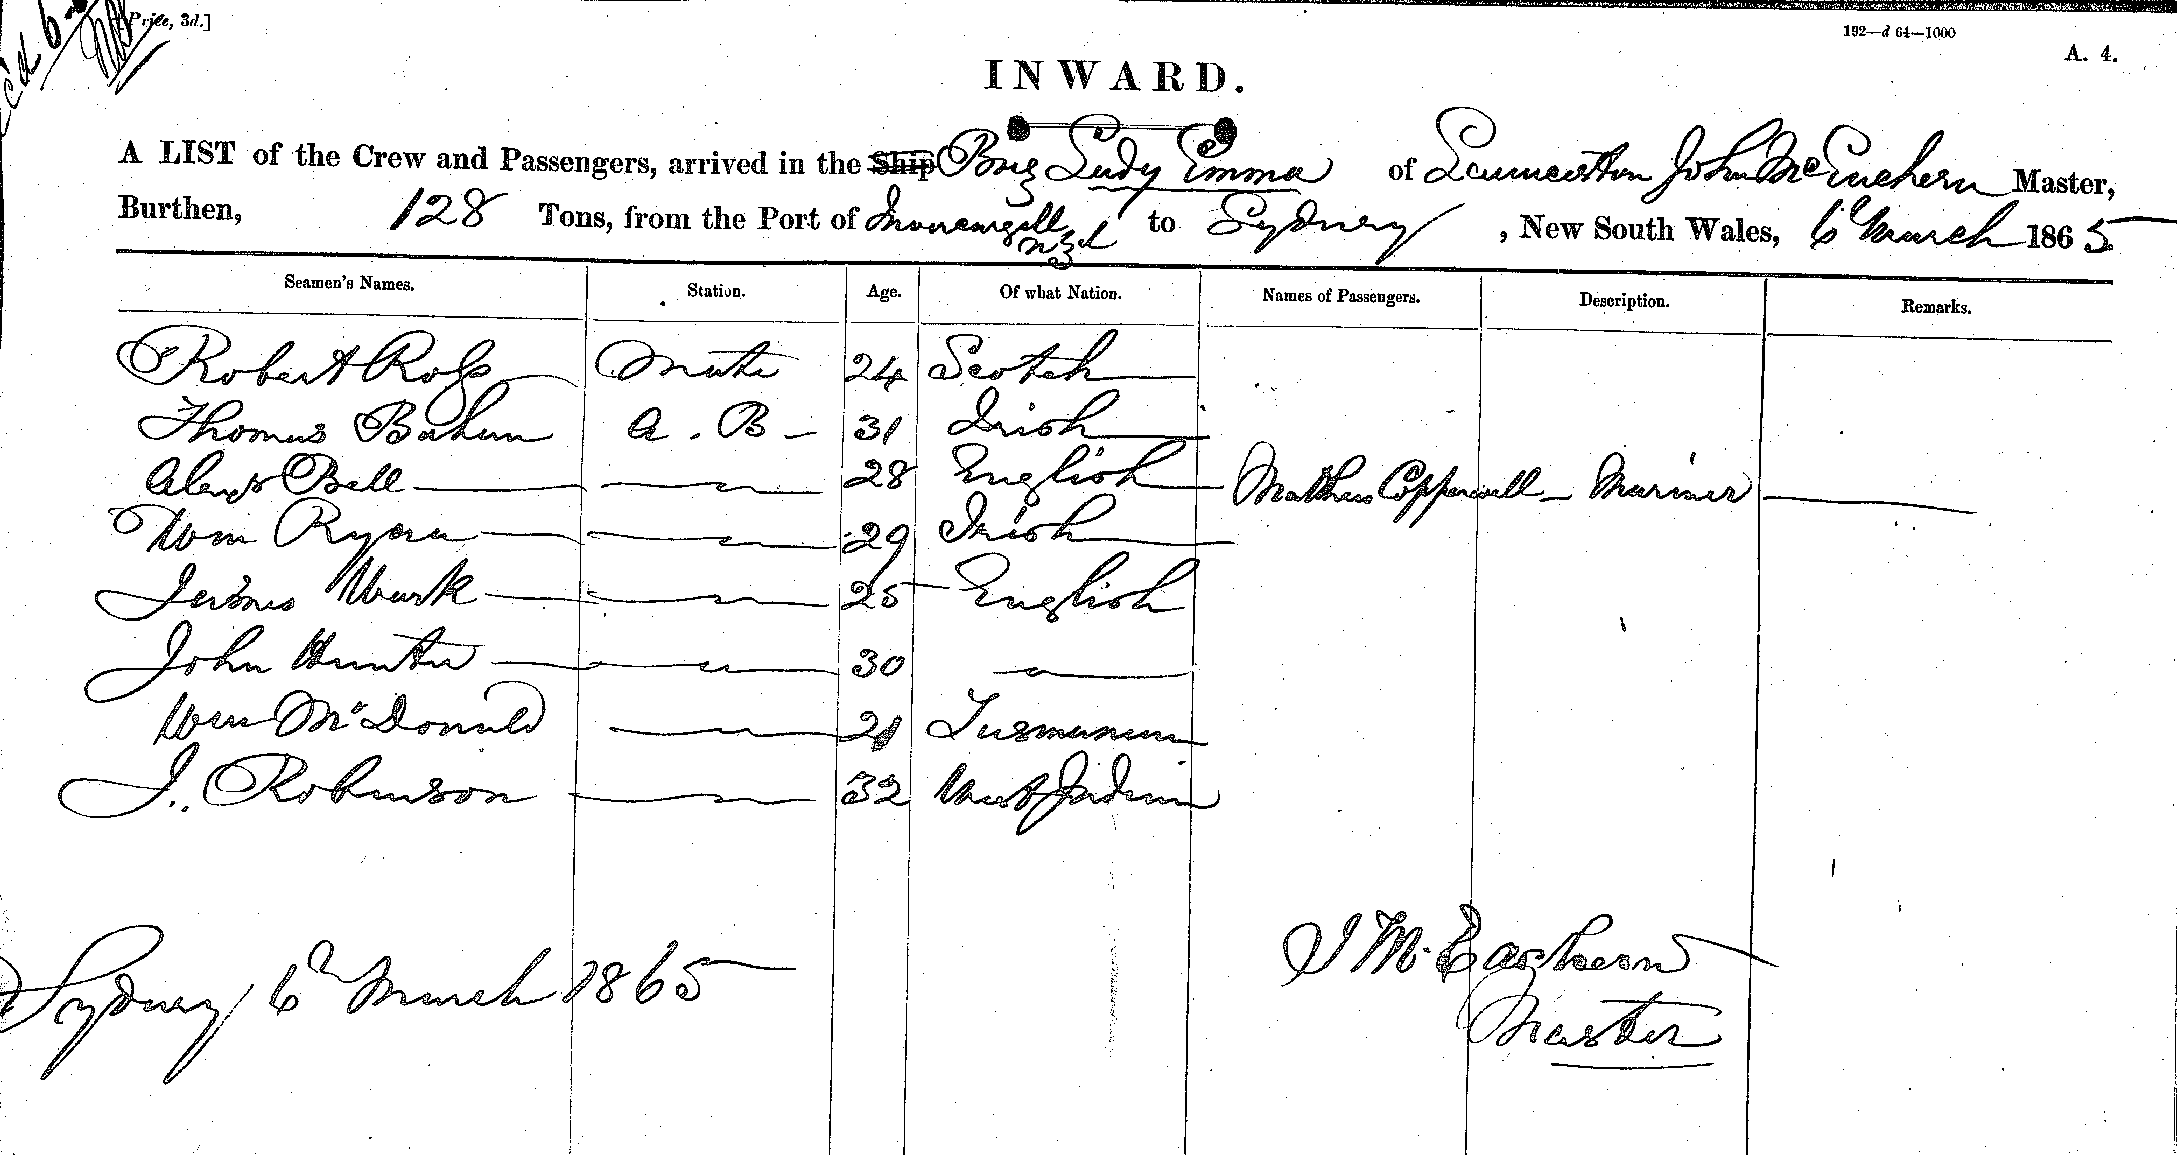 Price, 3d.]
192—d 64—1000
A. 4.
INWARD.
A LIST of the Crew and Passengers, arrived in the Ship Brig Lady Emma of Launceston John McEachern Master,
Burthen, 128 Tons, from the Port of Invercargill Nzd to Sydney, New South Wales, 6th March 1865
Seamen's Names. Station. Age. Of what Nation. Names of Passengers. Description. Remarks.
Robert Ross Mate 24 Scotch
Thomas A. B 31 Irish
Alexr Bell 28 English Mathew Copperwell Mariner
Wm Ryan 29 Irish
James 25 English
John Hunter 30
Wm McDonald 21 Tasmanian
J. Robinson 32 West Indian
Sydney 6th March 1865
J McEachern
Master